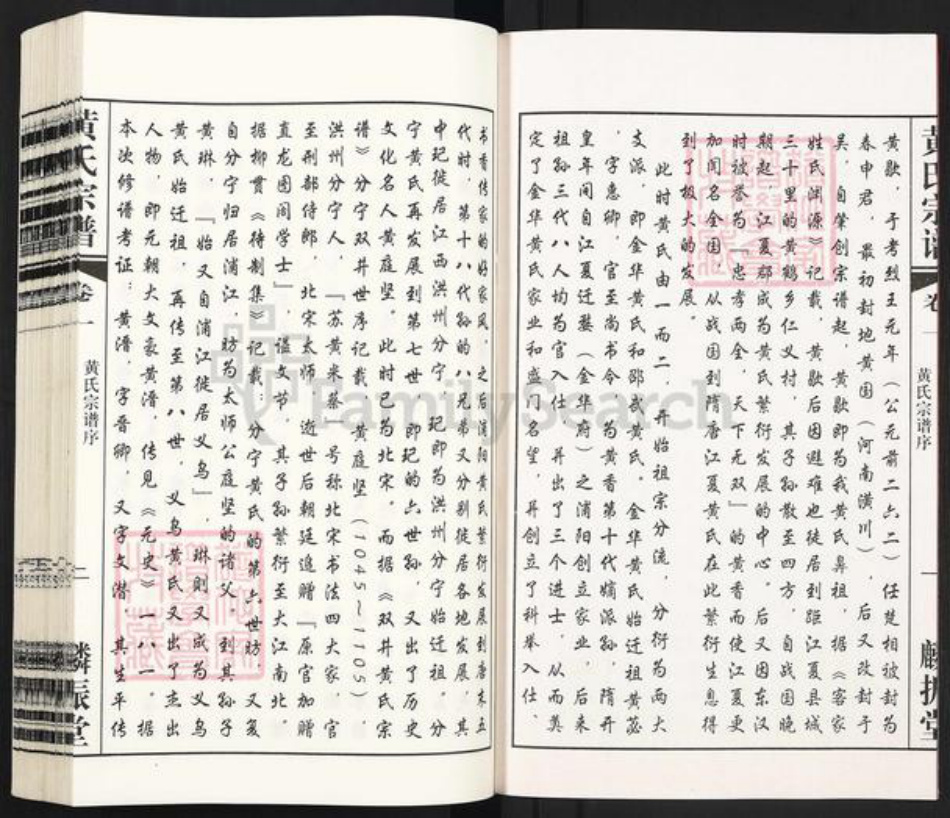 黄氏宗谱
卷一
黄氏宗谱序
一
麟振堂
黄歇，于考烈王元年（公元前二六二）任楚相被封为
春申君，最初封地黄国（河南潢川），后又改封于
吴，自肇创宗谱起，黄歇即为我黄氏鼻祖，据《客家
姓氏渊源》记载，黄歇后因避难也徒居到距江夏县城
三十里的黄鹤乡仁义村，其子孙散至四方，自战国晚
期起，江夏郡成为黄氏繁衍发展的中心。后又因东汉
时被誉为『忠孝两全，天下无双』的黄香而使江夏更
加闻名全国，从战国到隋唐江夏黄氏在此繁衍生息得
到了极大的发展。
此时黄氏由一而二，开始祖宗分流，分衍为两大
支派，即金华黄氏和邵武黄氏。金华黄氏始迁祖黄苾
，字惠卿，官至尚书令，为黄香第十代嫡派孙，隋开
皇年间自江夏迁婺（金华府）之浦阳创立家业，后来
祖孙三代八人均为官入仕，并出了三个进士，从而奠
定了金华黄氏家业和盛门名望，开创立了科举入仕、
书香传家的好家风，之后浦阳黄氏繁衍发展到唐末五
代时，第十八代孙的八兄弟又分别徒居各地发展，其
中玘徙居江西洪州分宁，玘即为洪州分宁始迁祖。分
宁黄氏再发展到第七世，即玘的六世孙，又出了历史
文化名人黄庭坚。此时已为北宋。而据《双井黄氏宗
谱》分宁双井世序记载，黄庭坚（1045～1105），
洪州分宁人，『苏黄米蔡』号称北宋书法四大家，官
至刑部侍郎，北宋太师，逝世后朝廷追赠『原官加赠
直龙图阁学士』，谥文节，其子孙繁衍至大江南北。
据柳贯《待制集》记载：分宁黄氏的第六世昉，又复
自分宁归居浦江，昉为太师公庭坚的诸父。到其孙子
黄琳，『始又自浦江徙居义乌』，琳则又成为义乌
黄氏始迁祖，再传至第八世，义乌黄氏又出了杰出
人物，即元朝大文豪黄溍，传见《元史》一八一。据
本次修谱考证：黄溍，字晋卿，又字文潜，其生平传
黄氏宗谱
卷一
黄氏宗谱序
二
麟振堂
FamilySearch